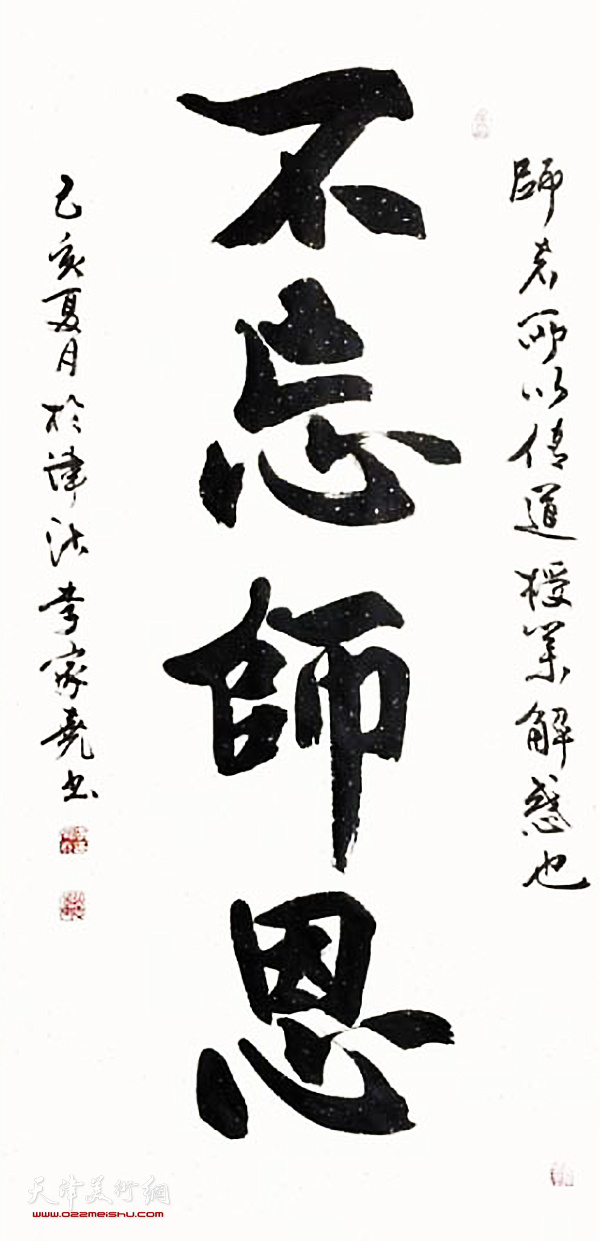 師者所以傳道授業解惑也
不忘師恩
己亥夏月於津沽李家堯书
天津美術網
www.022meishu.com